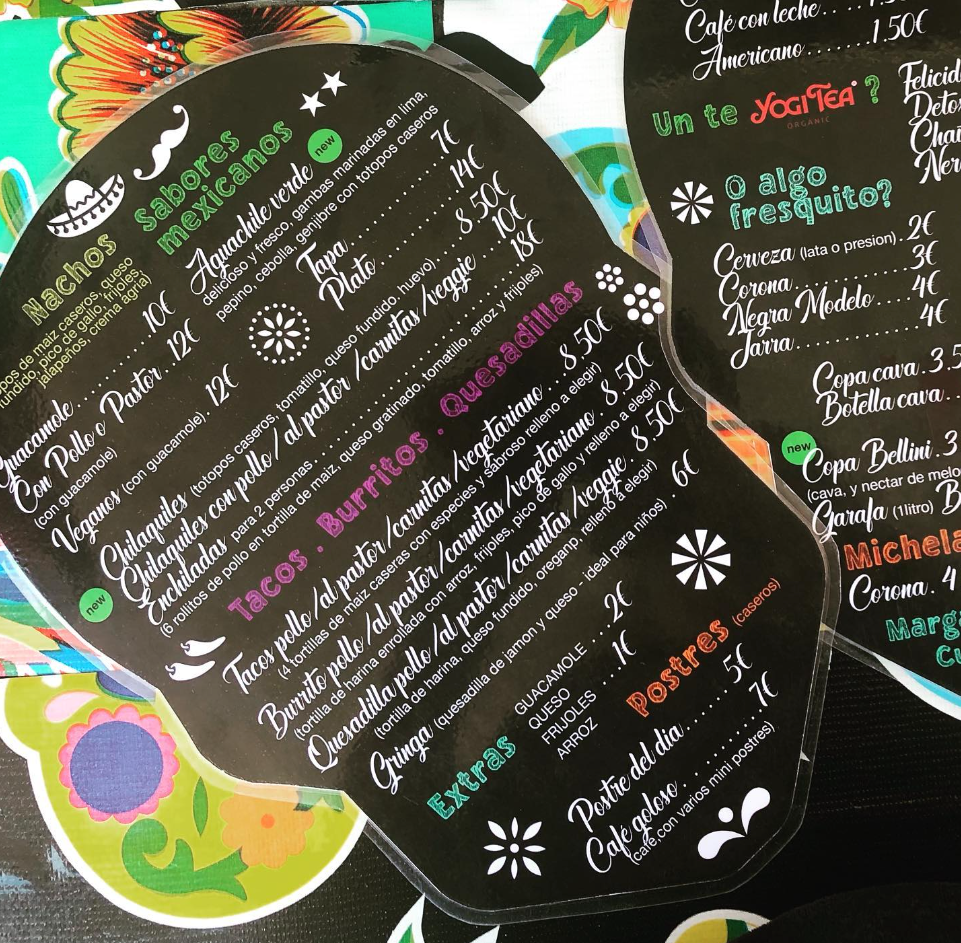 Nachos
totopos de maiz caseros, queso
fundido, pico de gallo, frijoles,
jalapeños, crema agria)
Guacamole ........ 10€
Con Pollo o Pastor . 12€
(con guacamole)
Veganos (con guacamole) . 12€
Sabores
mexicanos
Aguachile verde new
delicioso y fresco, gambas marinadas en lima,
pepino, cebolla, genjibre con totopos caseros
Tapa ........ 7€
Plato ........ 14€
Chilaquiles (totopos caseros, tomatillo, queso fundido, huevo) . 8.50€
Chilaquiles con pollo / al pastor / carnitas / veggie . 10€
new
Enchiladas para 2 personas ........ 18€
(6 rollitos de pollo en tortilla de maiz, queso gratinado, tomatillo, arroz y frijoles)
Tacos . Burritos . Quesadillas
Tacos pollo / al pastor / carnitas / vegetariano . 8.50€
(4 tortillas de maiz caseras con especies y sabroso relleno a elegir)
Burrito pollo / al pastor / carnitas / vegetariano . 8.50€
(tortilla de harina enrollada con arroz, frijoles, pico de gallo y relleno a elegir)
Quesadilla pollo / al pastor / carnitas / veggie . 8.50€
(tortilla de harina, queso fundido, oregano, relleno a elegir)
Gringa (quesadilla de jamon y queso - ideal para niños) . 6€
Extras
GUACAMOLE ... 2€
QUESO
FRIJOLES ... 1€
ARROZ
Postres (caseros)
Postre del dia ....... 5€
Café goloso ........ 7€
(café con varios mini postres)
Café con leche . . .
Americano ....... 1.50€
Un te YOGI TEA ?
ORGANIC
Felicid
Detox
Chai
O algo
fresquito?
Cerveza (lata o presion) . 2€
Corona ........ 3€
Negra Modelo .... 4€
Jarra ........ 4€
Copa cava . 3.5
Botella cava ..
new
Copa Bellini . 3
(cava, y nectar de melo
Garafa (1litro) B
Michela
Corona . 4
Marg
Cu